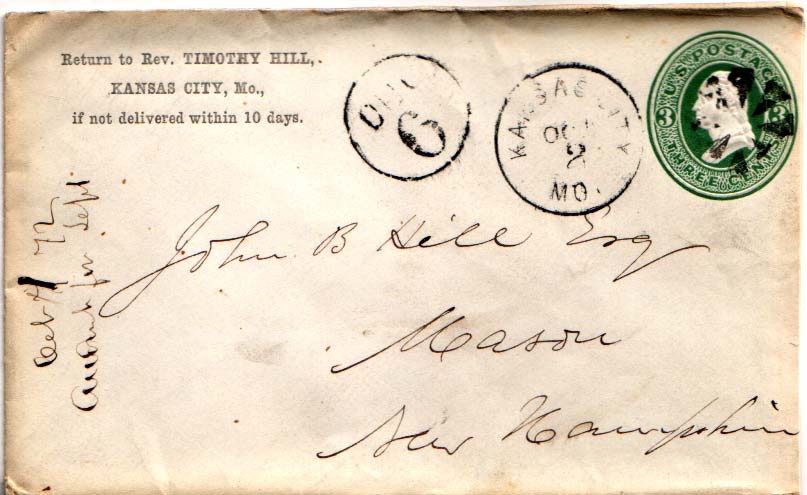 Return to Rev. TIMOTHY HILL,
KANSAS CITY, Mo.,
if not delivered within 10 days.
DUE
6
KANSAS CITY
OCT
2
MO.
U.S. POSTAGE
3 3
THREE CENTS
John B Hill Esq
Mason
New Hampshire
72
Account for Sept